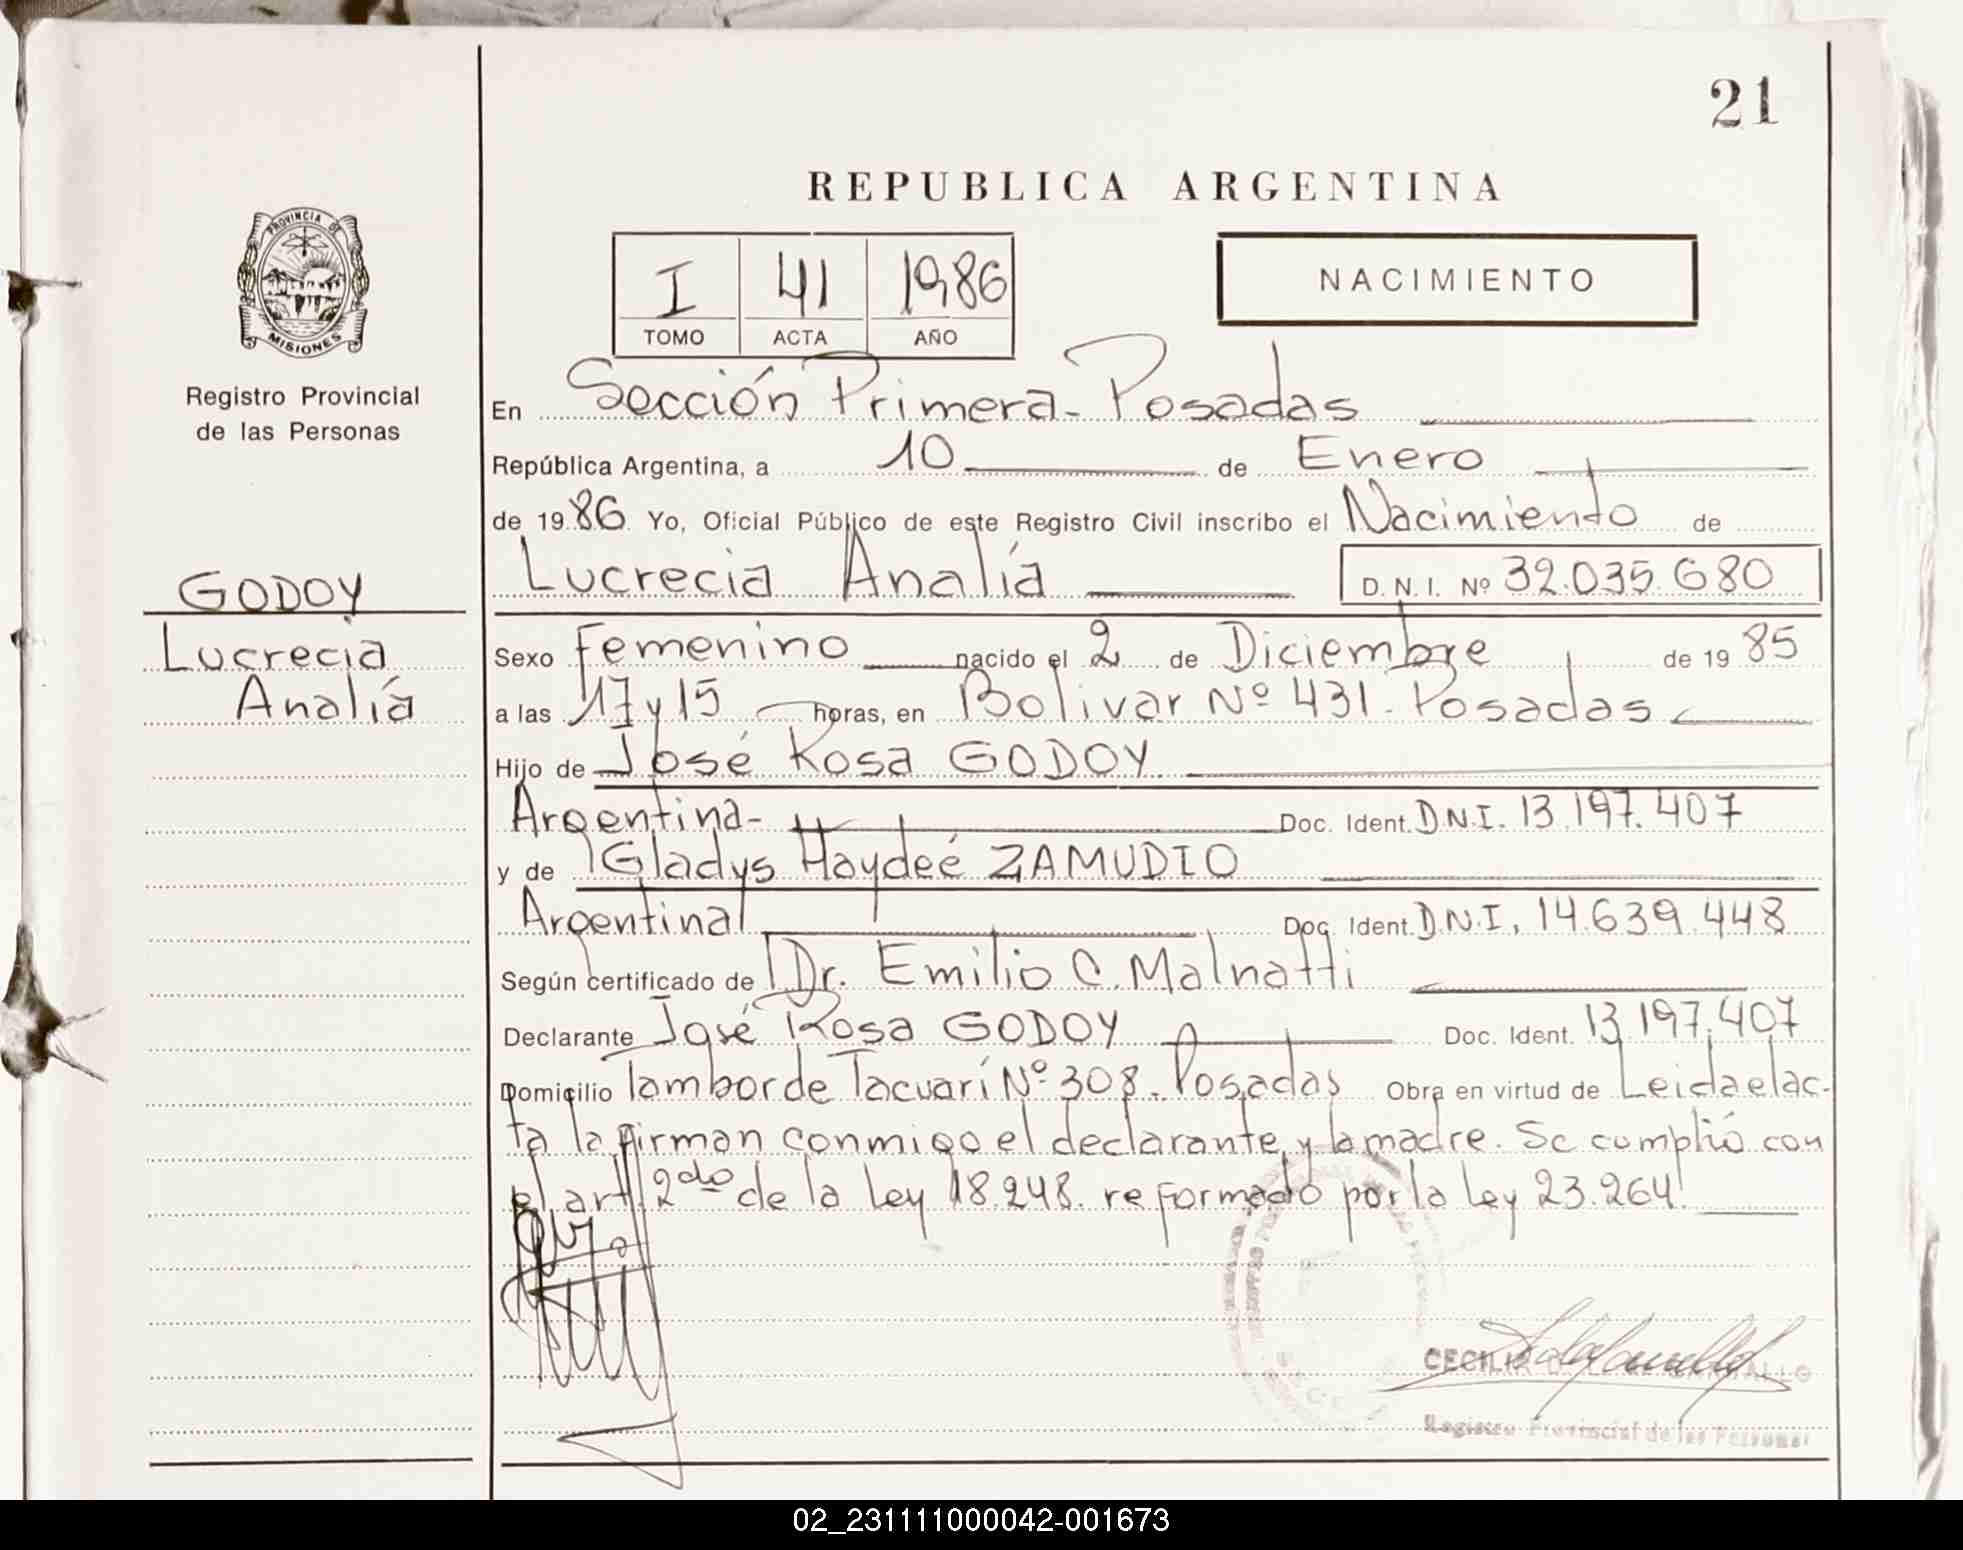 21
REPUBLICA ARGENTINA
PROVINCIA DE
MISIONES
Registro Provincial
de las Personas
I 41 1986
TOMO ACTA AÑO
NACIMIENTO
En Sección Primera - Posadas
República Argentina, a 10 de Enero
de 1986 Yo, Oficial Público de este Registro Civil inscribo el Nacimiento de
Lucrecia Analía D. N. I. Nº 32.035.680
GODOY
Lucrecia
Analía
Sexo Femenino nacido el 2 de Diciembre de 1985
a las 17 y 15 horas, en Bolivar Nº 431 - Posadas
Hijo de José Rosa GODOY
Argentina - Doc. Ident. D.N.I. 13.197.407
y de Gladys Haydeé ZAMUDIO
Argentina Doc. Ident. D.N.I. 14.639.448
Según certificado de Dr. Emilio C. Malnatti
Declarante José Rosa GODOY Doc. Ident. 13.197.407
Domicilio Tambor de Tacuarí Nº 308 - Posadas Obra en virtud de Leida el ac-
ta la firman conmigo el declarante y la madre. Se cumplió con
el art 2do de la Ley 18.248. reformado por la ley 23.264.
CECILIA
Registro Provincial de las Personas
02_231111000042-001673